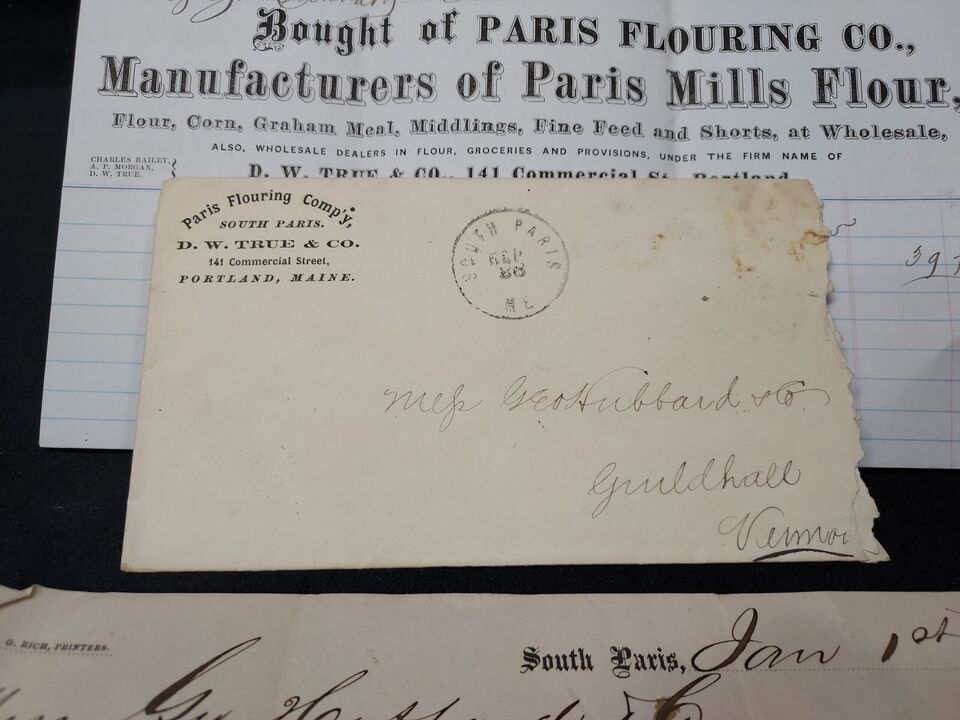 Bought of PARIS FLOURING CO.,
Manufacturers of Paris Mills Flour,
Flour, Corn, Graham Meal, Middlings, Fine Feed and Shorts, at Wholesale,
ALSO, WHOLESALE DEALERS IN FLOUR, GROCERIES AND PROVISIONS, UNDER THE FIRM NAME OF
CHARLES BAILEY,
A. P. MORGAN,
D. W. TRUE.
D. W. TRUE & CO., 141 Commercial St., Portland
39
Paris Flouring Comp'y,
SOUTH PARIS.
D. W. TRUE & CO.
141 Commercial Street,
PORTLAND, MAINE.
SOUTH PARIS
ME
Mess Geo Hubbard & Co.
Guildhall
Vermon
G. RICH, PRINTERS.
South Paris, Jan 1st
Geo Hubbard & Co